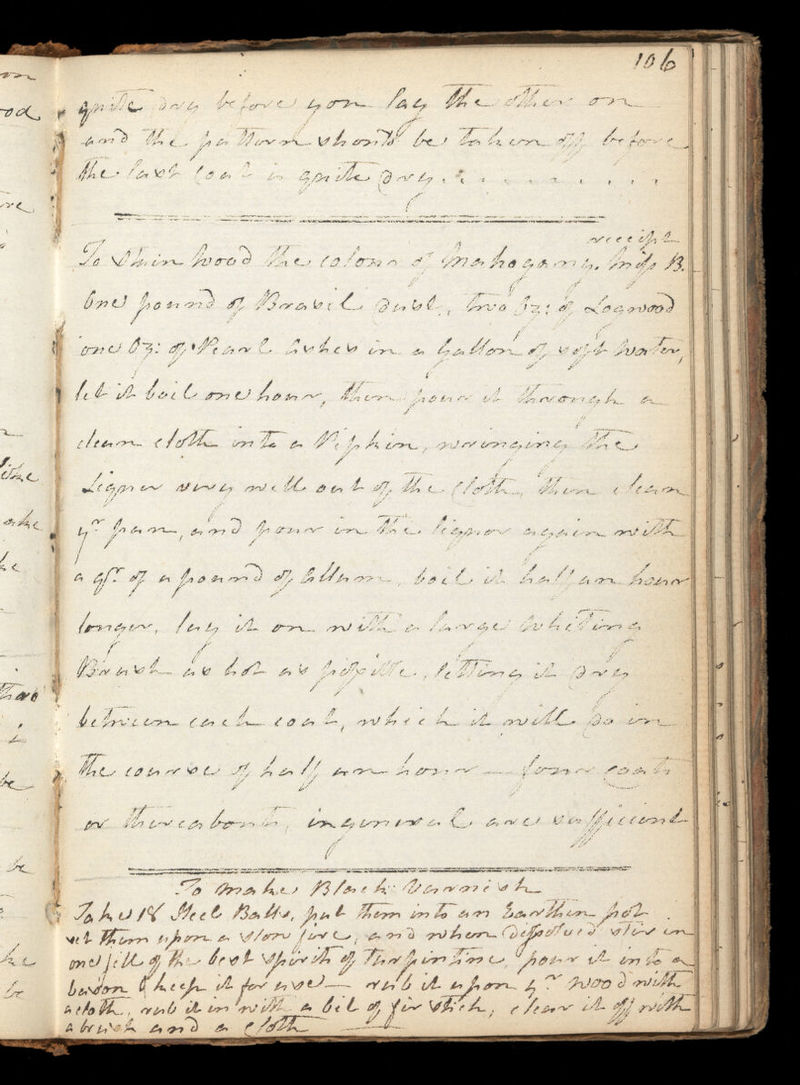 106
quite dry before you lay the other on
and the pattern should be taken off before
the last Coat is quite dry . . . . . . . . . .
receipt
To stain Wood the colour of Mahogany. Miss B.
One pound of Brasil dust, two Oz: of Logwood
one Oz: of Pearl Ashes in a Gallon of soft Water,
let it boil one hour, then pour it through a
clean cloth into a Pipkin, wringing the
Liquor very well out of the Cloth, then clean
yr pan, and pour in the liquor again with
a qr. of a pound of Allum, boil it half an hour
longer, lay it on with a large Whiting
Brush as hot as possible, letting it dry
between each coat, which it will do in
the course of half an hour — four Coats
or thereabouts, in general are sufficient
To make Black Varnish
Take 18 Steel Balls, put them into an Earthen pot
set them upon a slow fire, and when dissolved stir in
one jill of the best spirits of Turpintine, pour it into a
bason & keep it for use — rub it upon yr wood with
a cloth, rub it in with a bit of fir stick, clear it off with
a brush and a cloth